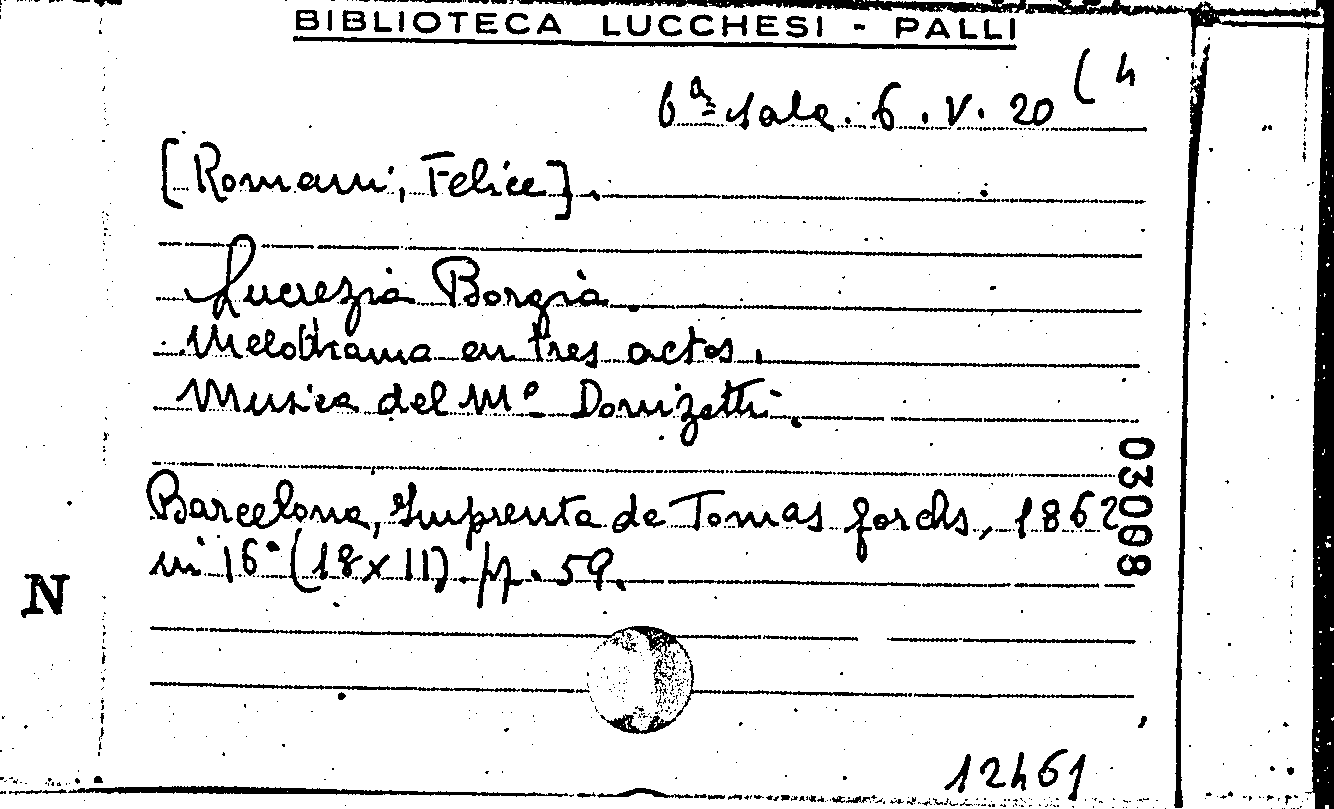 BIBLIOTECA LUCCHESI - PALLI
6ª sala. 6. V. 20 (4
[Romani, Felice].
Lucrezia Borgia.
Melodrama en tres actos.
Musica del Mº Donizetti.
Barcelona, Imprenta de Tomas Gorchs, 1862
in 16° (18x11). pp. 59.
030008
N
12461